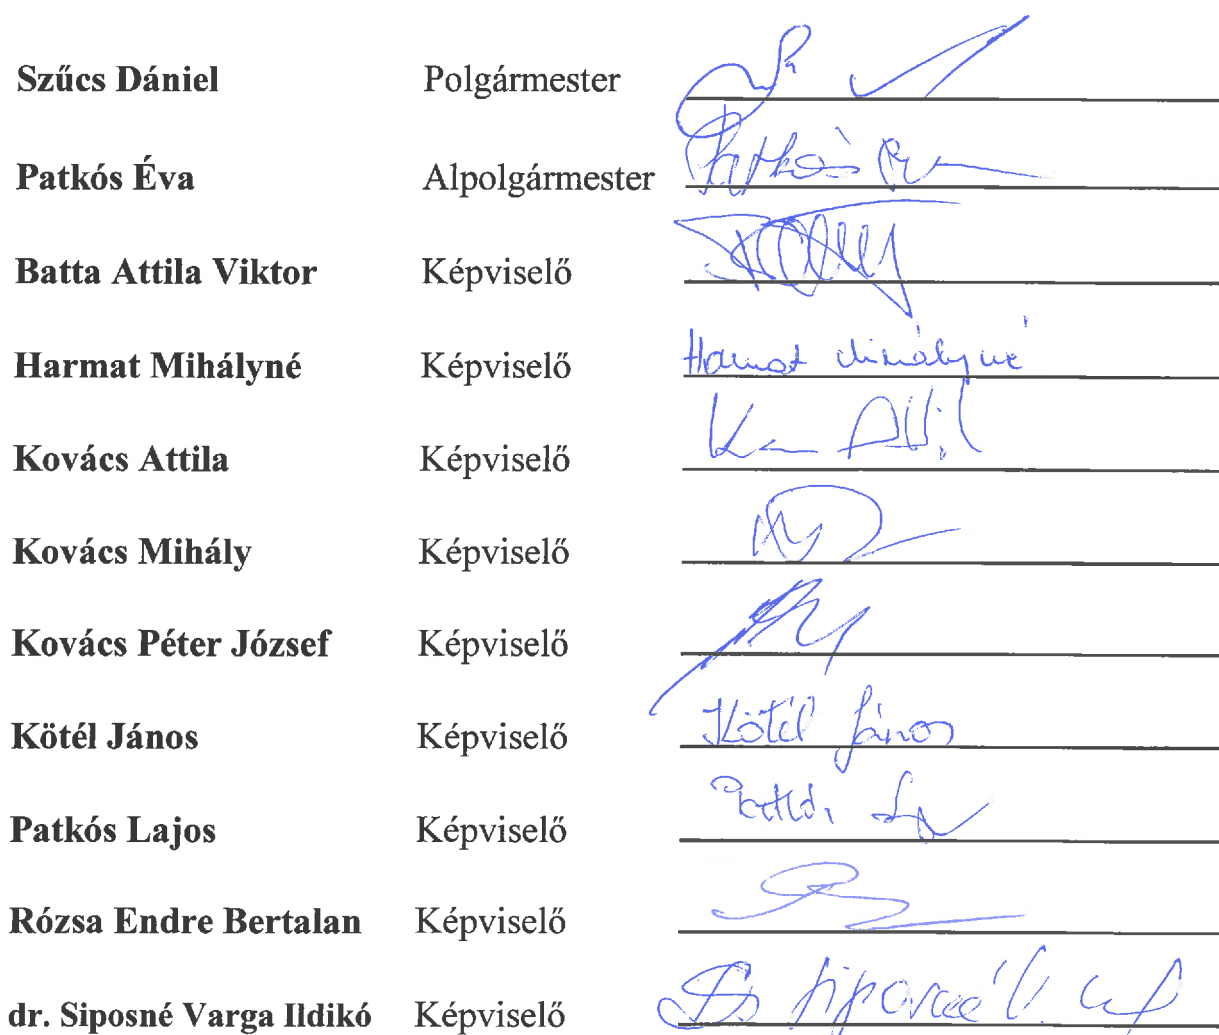 Szűcs Dániel Polgármester
Patkós Éva Alpolgármester Patkós
Batta Attila Viktor Képviselő
Harmat Mihályné Képviselő Harmat Mihályné
Kovács Attila Képviselő Attil
Kovács Mihály Képviselő
Kovács Péter József Képviselő
Kötél János Képviselő Kötél János
Patkós Lajos Képviselő
Rózsa Endre Bertalan Képviselő
dr. Siposné Varga Ildikó Képviselő